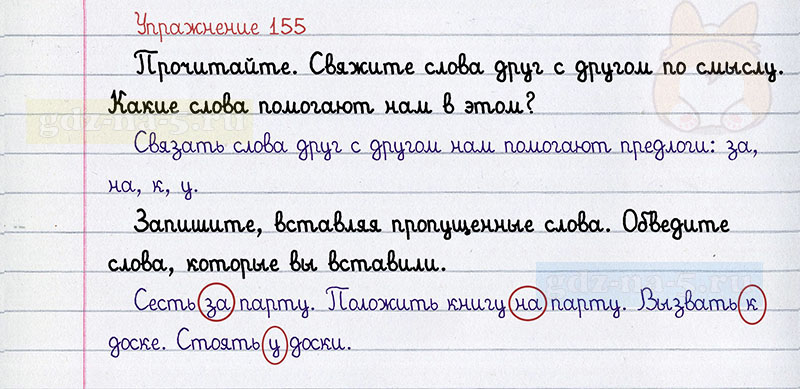 Упражнение 155
Прочитайте. Свяжите слова друг с другом по смыслу.
Какие слова помогают нам в этом?
Связать слова друг с другом нам помогают предлоги: за,
на, к, у.
Запишите, вставляя пропущенные слова. Обведите
слова, которые вы вставили.
Сесть за парту. Положить книгу на парту. Вызвать к
доске. Стоять у доски.